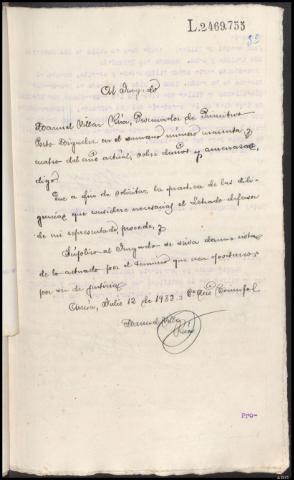 L.2469.755
Al Juzgado
Manuel Villar Riva, Procurador de
Porto Diguela, en el sumario número cuarenta y
cuatro del año actual, sobre daños y amenazas,
digo:
Que a fin de solicitar la practica de las dili-
gencias que considere necesarias el Letrado defensor
de mi representado, procede, y
Suplico al Juzgado se sirva darme vista
de lo actuado por el termino que crea oportuno,
por ser de justicia
Julio 12 de 1933.
Manuel Villar
Riva
PPO-